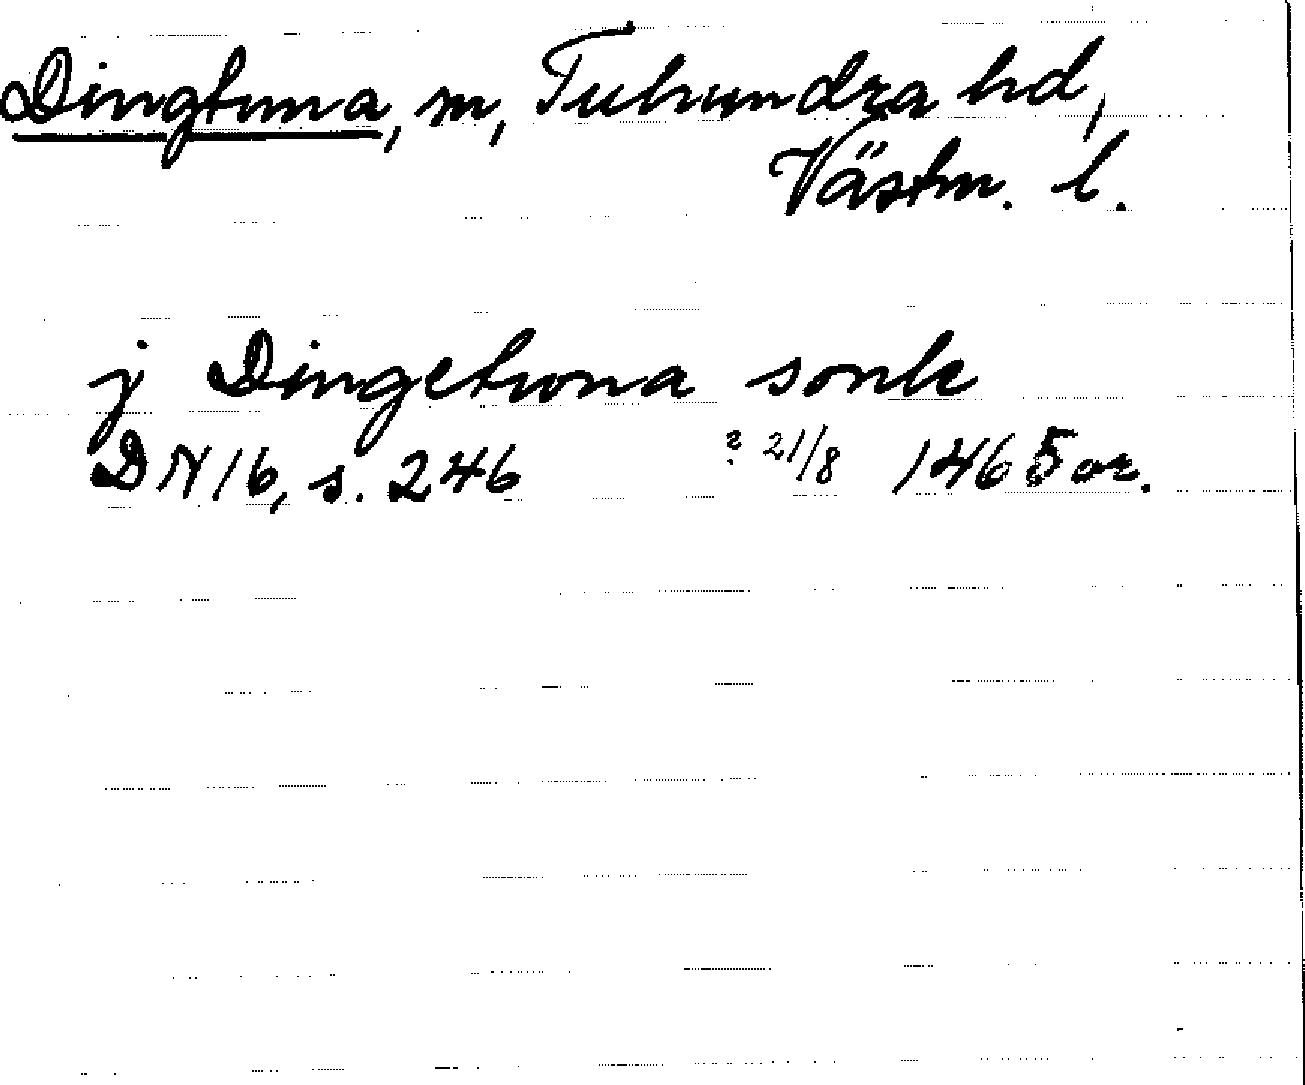 Dingtuna, sn, Tuhundra hd,
Västm. l.
j Dingetwna sonk
DN 16, s. 246 ? 21/8 1465 or.